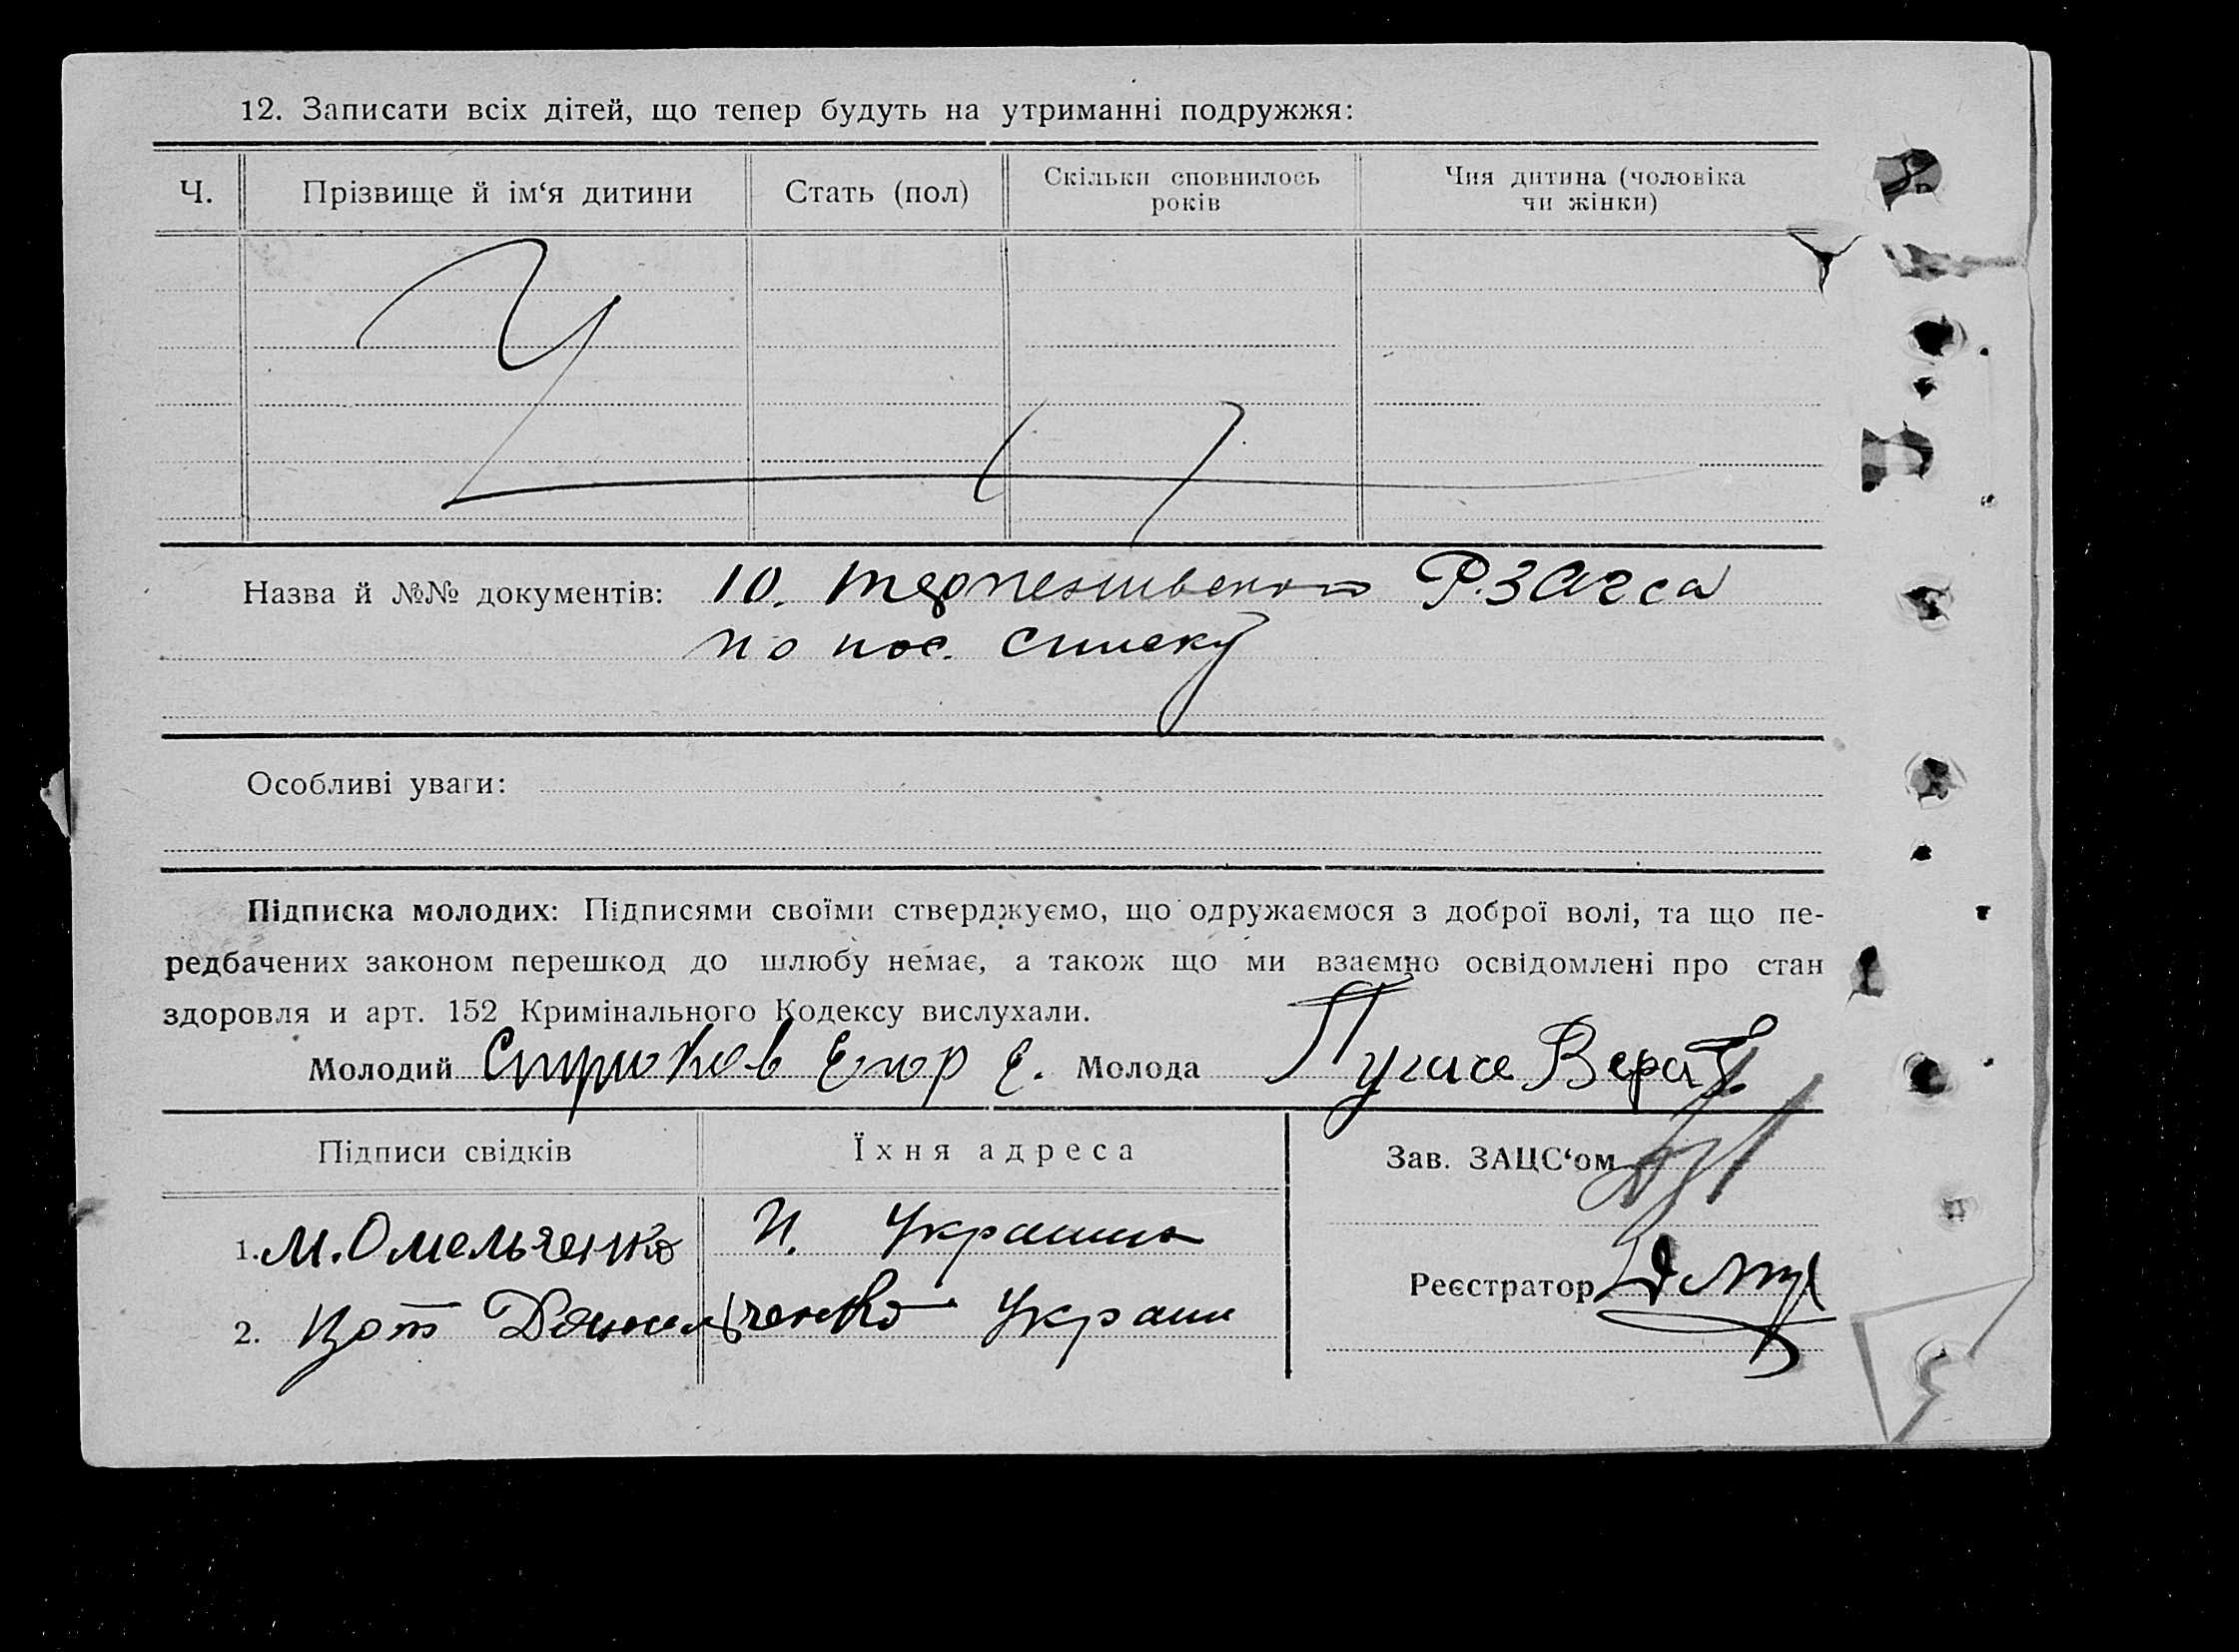 12. Записати всіх дітей, що тепер будуть на утриманні подружжя:
Ч. Прізвище й ім‘я дитини Стать (пол) Скільки сповнилось років Чия дитина (чоловіка чи жінки)
Назва й №№ документів: 10. Р.ЗАгса
по пос. списку
Особливі уваги:
Підписка молодих: Підписями своїми стверджуємо, що одружаємося з доброї волі, та що пе-
редбачених законом перешкод до шлюбу немає, а також що ми взаємно освідомлені про стан
здоровля и арт. 152 Кримінального Кодексу вислухали.
Молодий Стрюков Егор Е. Молода Вера
Підписи свідків Їхня адреса Зав. ЗАЦС‘ом
1. М. Омельченко
Реєстратор
2.